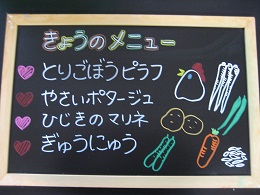 きょうのメニュー
とりごぼうピラフ
やさいポタージュ
ひじきのマリネ
ぎゅうにゅう